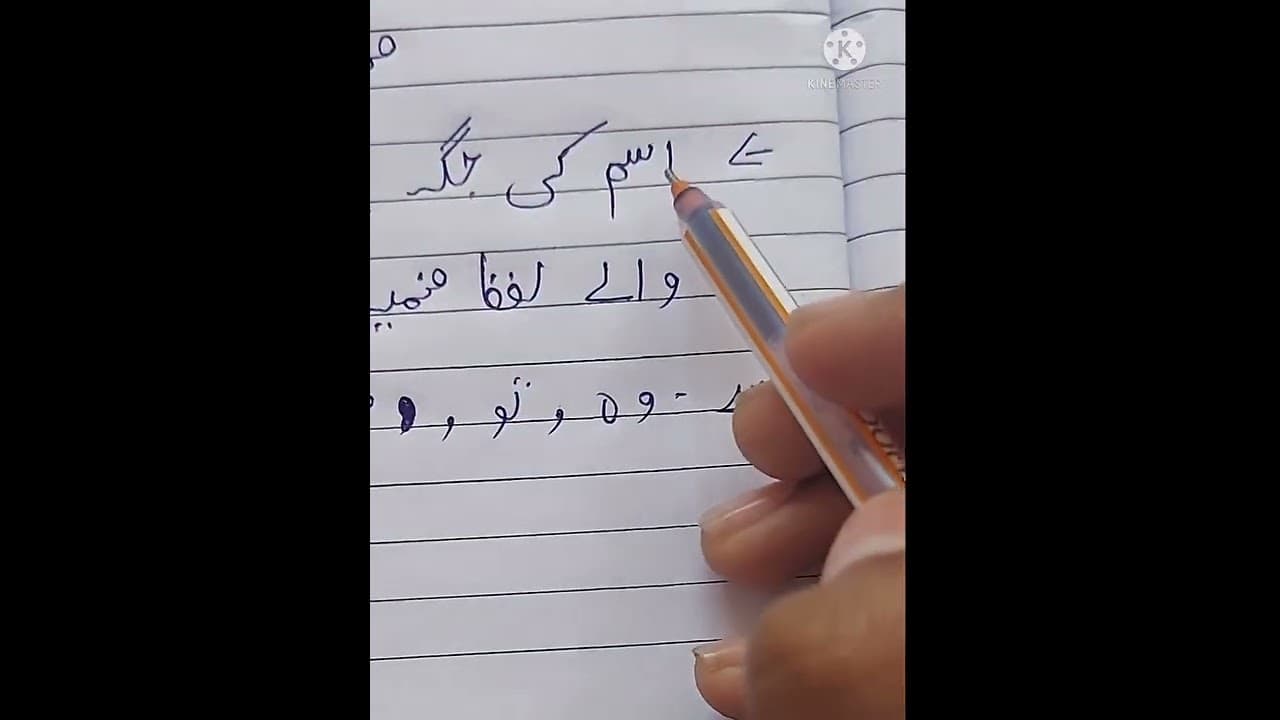 KINEMASTER
← اسم کی جگہ
والے لفظ ضمیر
- وہ , تو ,